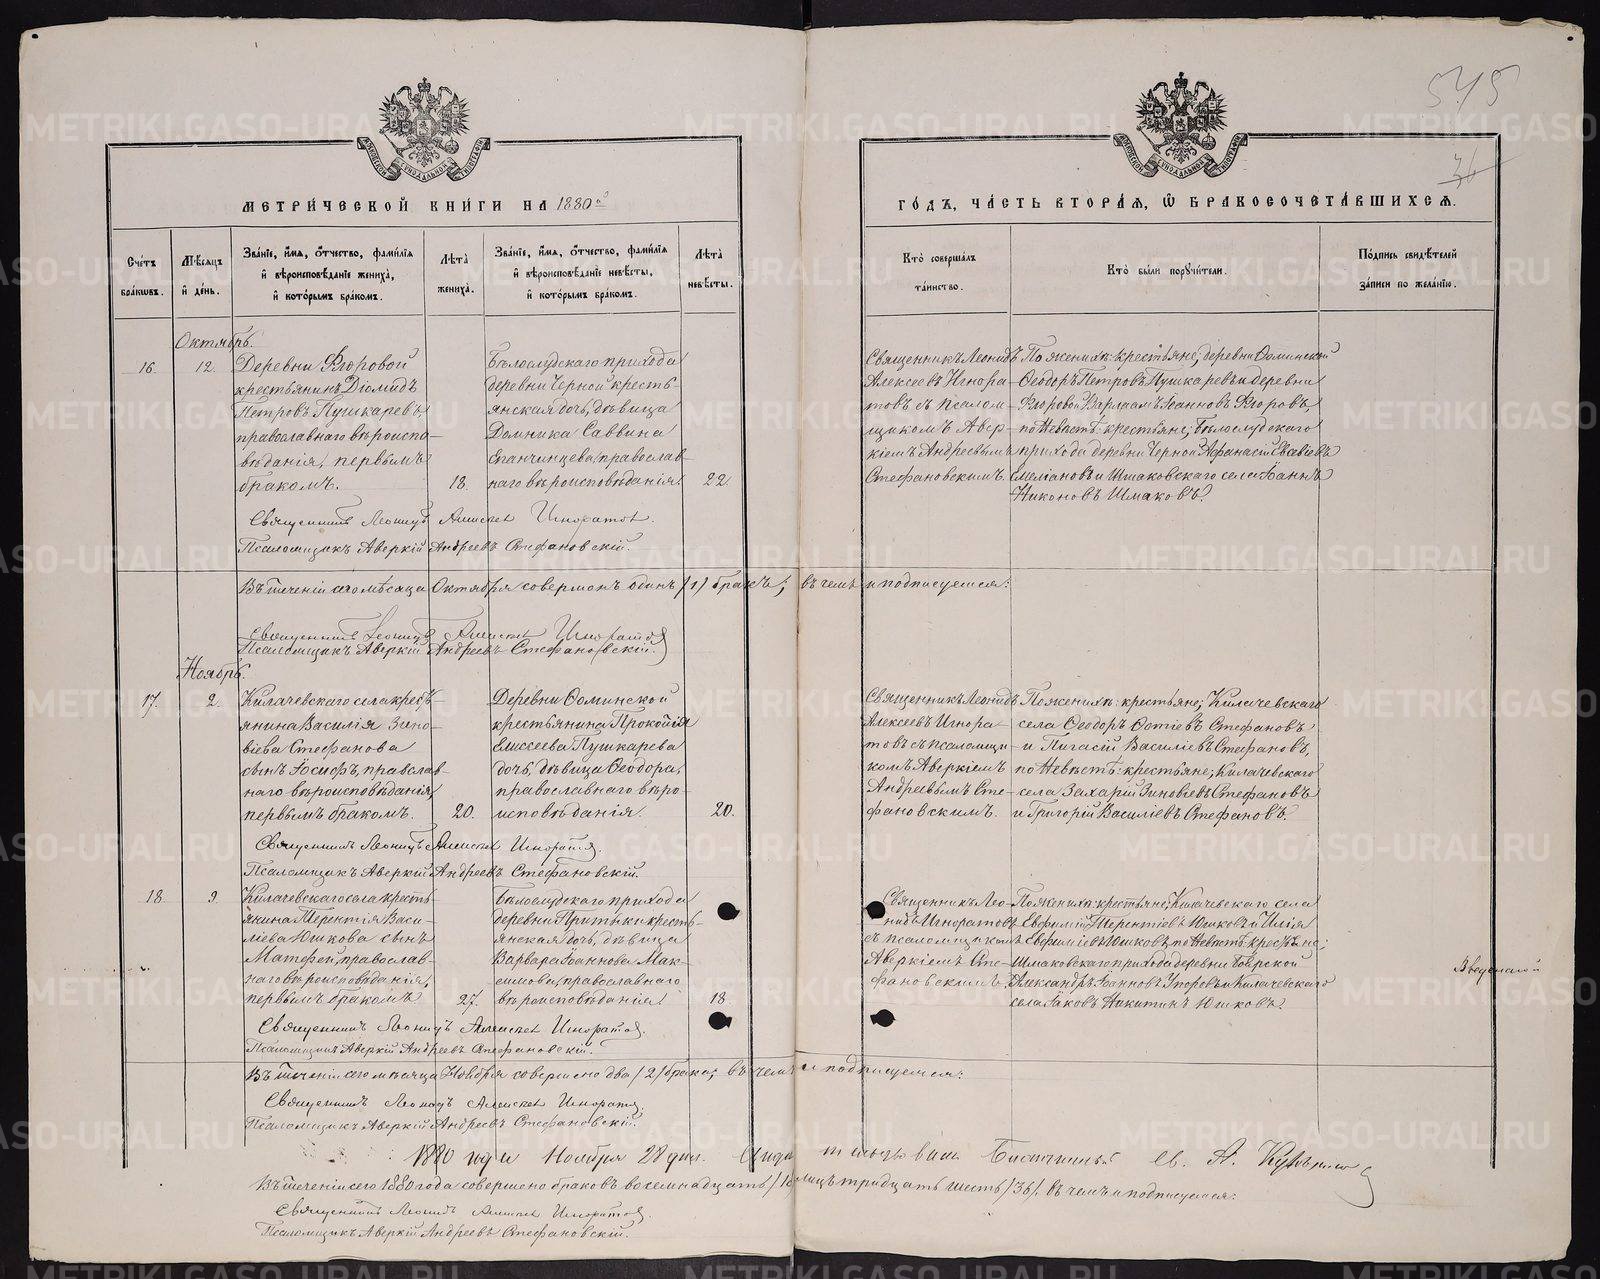 545
36
МЕТРИ́ЧЕСКОЙ КНИ́ГИ НА 1880 й
ГО́ДЪ, ЧА́СТЬ ВТОРА́Я, Ѡ БРАКОСОЧЕТА́ВШИХСЯ.
Сче́тъ бра́ковъ.
Мѣ́сяцъ и́ де́нь.
Зва́нїе, и́мя, о́тчество, фами́лїя и́ вѣроисповѣ́данїе жениха̀, и́ кото́рымъ бра́комъ.
Лѣ́та̀ жениха̀.
Зва́нїе, и́мя, о́тчество, фами́лїя и́ вѣроисповѣ́данїе невѣ́сты, и́ кото́рымъ бра́комъ.
Лѣ́та̀ невѣ́сты.
Кто̀ соверша́лъ та́инство.
Кто̀ бы́ли поручи́тели.
По́дпись свидѣ́телей за́писи по жела́нїю.
Октябрь.
16. 12.
Деревни Ѳгоровой
крестьянинъ Діомидъ
Петровъ Пушкаревъ
православнаго вѣроиспо-
вѣданія, первымъ
бракомъ. 18.
Бѣлослудскаго прихода
деревни Черной кресть-
янская дочь, дѣвица
Домника Саввина
Епанчинцева, православ-
наго вѣроисповѣданія. 22.
Священникъ Леонидъ
Алексеевъ Игнора-
товъ съ псалом-
щикомъ Авер-
кіемъ Андреевымъ
Стефановскимъ.
По женихѣ: крестьяне; деревни Ѳоминской
Ѳеодоръ Петровъ Пушкаревъ и деревни
Варлаамъ Іоанновъ
по невѣстѣ: крестьяне; Бѣлослудскаго
прихода деревни Черной Аѳанасій
Емеліановъ и Шмаковскаго села Іоаннъ
Никоновъ Шмаковъ.
Священникъ Леонидъ Алексеевъ Игноратовъ.
Псаломщикъ Аверкій Андреевъ Стефановскій.
Въ теченіи сего мѣсяца Октября совершонъ одинъ /1/ бракъ; въ чемъ и подписуемся:
Священникъ Леонидъ Алексеевъ Игноратовъ
Псаломщикъ Аверкій Андреевъ Стефановскій.
Ноябрь.
17. 2.
Килачевскаго села кресть-
янина Василія Зино-
віева Стефанова
сынъ Іосифъ, православ-
наго вѣроисповѣданія,
первымъ бракомъ. 20.
Деревни Ѳоминской
крестьянина Прокопія
Елисеева Пушкарева
дочь, дѣвица Ѳеодора,
православнаго вѣро-
исповѣданія. 20.
Священникъ Леонидъ
Алексеевъ Игнора-
товъ съ псаломщи-
комъ Аверкіемъ
Андреевымъ Сте-
фановскимъ.
По женихѣ: крестьяне; Килачевскаго
села Ѳеодоръ Фотіевъ Стефановъ
и Пигасій Василіевъ Стефановъ,
по невѣстѣ: крестьяне; Килачевскаго
села Захарій Зиновіевъ Стефановъ
и Григорій Василіевъ Стефановъ.
Священникъ Леонидъ Алексеевъ Игноратовъ.
Псаломщикъ Аверкій Андреевъ Стефановскій.
18. 9.
Килачевскаго села кресть-
янина Терентія Васи-
ліева Юшкова сынъ
Матѳей, православ-
наго вѣроисповѣданія,
первымъ бракомъ 27.
Бѣлослудскаго прихода
деревни Притыки кресть-
янская дочь, дѣвица
Варвара Іоаннова Мак-
симова, православнаго
вѣроисповѣданія. 18.
Священникъ Лео-
нидъ Игноратовъ
съ псаломщикомъ
Аверкіемъ Сте-
фановскимъ.
По женихѣ: крестьяне; Килачевскаго села
Евфимій Терентіевъ Юшковъ и Илія
Евфиміевъ Юшковъ, по невѣстѣ крестьяне:
Шмаковскаго прихода деревни Боярской
Александръ Іоанновъ Упоровъ и Килачевскаго
села Іаковъ Никитинъ Юшковъ.
Священникъ Леонидъ Алексеевъ Игноратовъ.
Псаломщикъ Аверкій Андреевъ Стефановскій.
Въ теченіи сего мѣсяца Ноября совершено два /2/ брака; въ чемъ и подписуемся:
Священникъ Леонидъ Алексеевъ Игноратовъ,
Псаломщикъ Аверкій Андреевъ Стефановскій.
1880 года Ноября 28 дня. Благочинный св. А.
Въ теченіи сего 1880 года совершено браковъ восемнадцать /18/ лицъ тридцать шесть /36/. въ чемъ и подписуемся:
Священникъ Леонидъ Алексеевъ Игноратовъ.
Псаломщикъ Аверкій Андреевъ Стефановскій.
METRIKI.GASO-URAL.RU